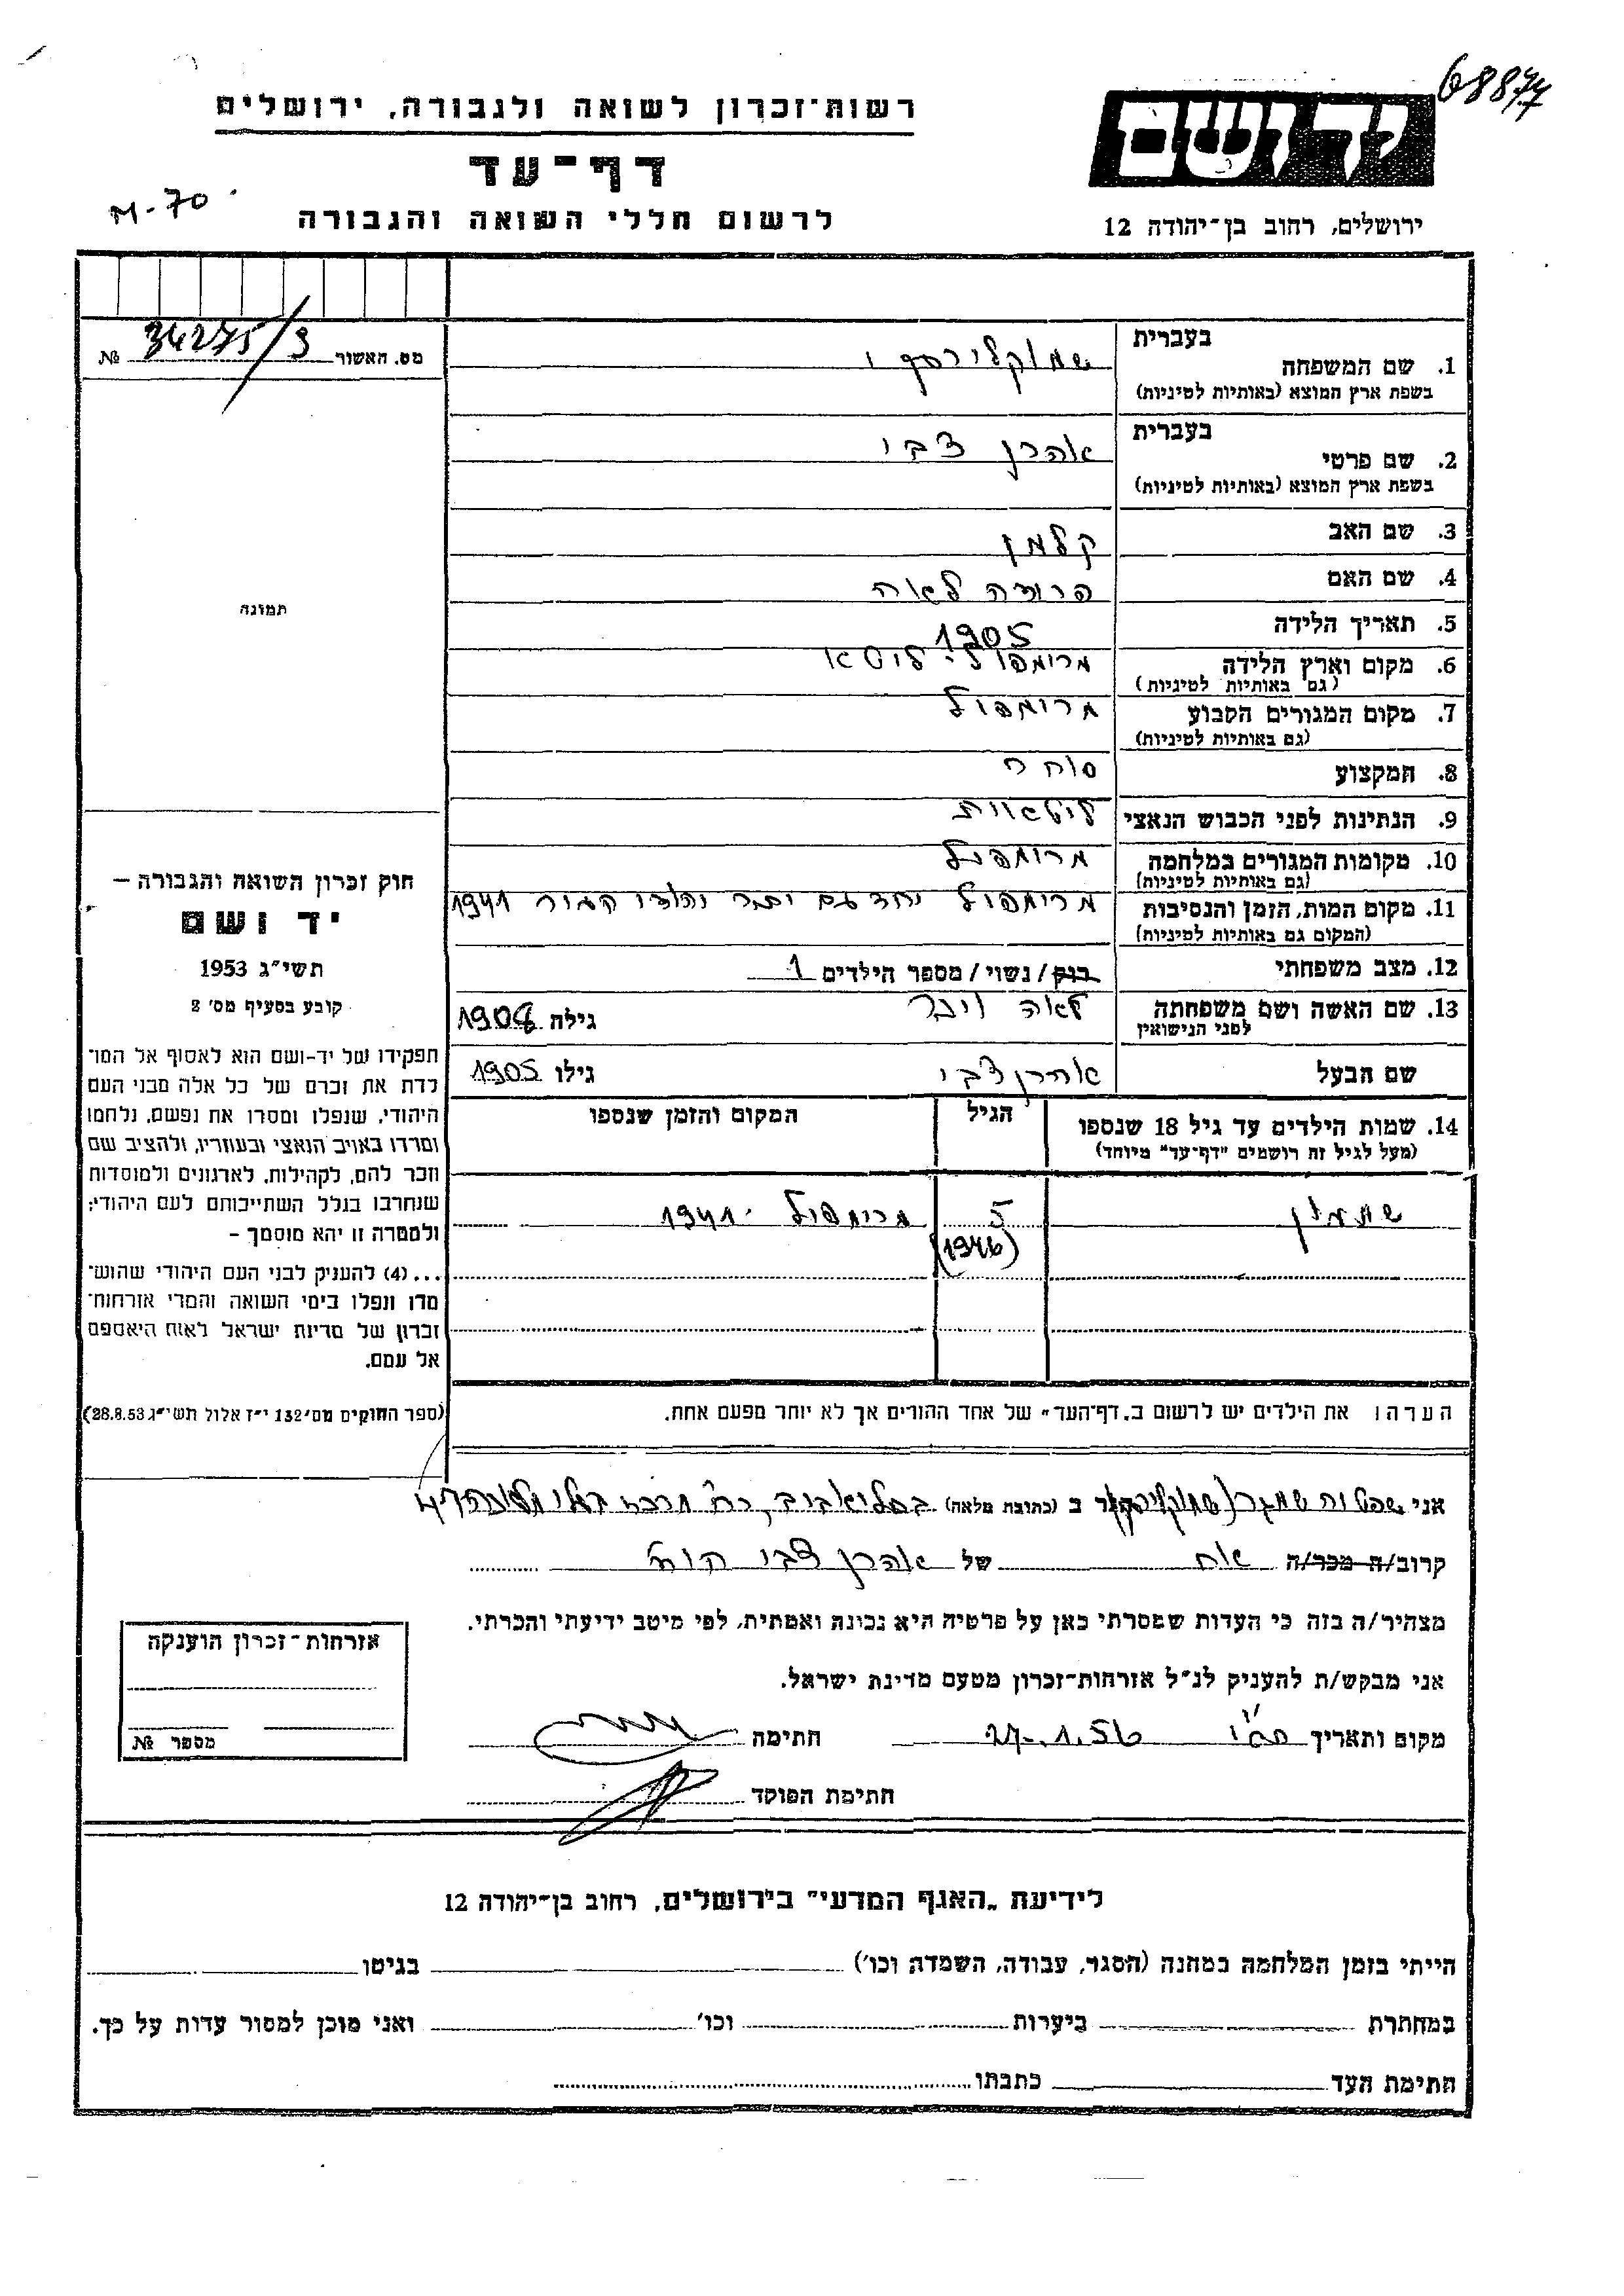 68877
רשות־זכרון לשואה ולגבורה, ירושלים
יד ושם
דף־עד
M-70
לרשום חללי השואה והגבורה
ירושלים, רחוב בן־יהודה 12
מס. האשור 34275/3 №
בעברית
1. שם המשפחה
בשפת ארץ המוצא (באותיות לטיניות)
בעברית
2. שם פרטי אהרן צבי
בשפת ארץ המוצא (באותיות לטיניות)
3. שם האב קלמן
4. שם האם לאה
תמונה
5. תאריך הלידה 1905
6. מקום וארץ הלידה מרימפול ליטא
(גם באותיות לטיניות)
7. מקום המגורים הקבוע מרימפול
(גם באותיות לטיניות)
8. המקצוע סוחר
9. הנתינות לפני הכבוש הנאצי ליטאית
10. מקומות המגורים במלחמה מרימפול
(גם באותיות לטיניות)
11. מקום המות, הזמן והנסיבות מרימפול יחד עם יתר יהודי העיר 1941
(המקום גם באותיות לטיניות)
12. מצב משפחתי רוק/נשוי/מספר הילדים 1
13. שם האשה ושם משפחתה לאה גילה 1908
לפני הנישואין
שם הבעל אהרן צבי גילו 1905
חוק זכרון השואה והגבורה –
יד ושם
תשי״ג 1953
קובע בסעיף מס׳ 2
תפקידו של יד-ושם הוא לאסוף אל המו־
לדת את זכרם של כל אלה מבני העם
היהודי, שנפלו ומסרו את נפשם, נלחמו
ומרדו באויב הנאצי ובעוזריו, ולהציב שם
וזכר להם, לקהילות, לארגונים ולמוסדות
שנחרבו בגלל השתייכותם לעם היהודי;
ולמטרה זו יהא מוסמך –
...(4) להעניק לבני העם היהודי שהוש־
מדו ונפלו בימי השואה והמרי אזרחות־
זכרון של מדינת ישראל לאות היאספם
אל עמם.
(ספר החוקים מס׳ 132 י״ז אלול תשי״ג 28.8.53)
14. שמות הילדים עד גיל 18 שנספו הגיל המקום והזמן שנספו
(מעל לגיל זה רושמים "דף-עד" מיוחד)
5 מרימפול 1941
הערה: את הילדים יש לרשום ב„דף־העד״ של אחד ההורים אך לא יותר מפעם אחת.
אני ב (כתובת מלאה)
קרוב/ה מכר/ה אח של אהרן צבי
מצהיר/ה בזה כי העדות שמסרתי כאן על פרטיה היא נכונה ואמתית, לפי מיטב ידיעתי והכרתי.
אני מבקש/ת להעניק לנ״ל אזרחות־זכרון מטעם מדינת ישראל.
מקום ותאריך ת״א 27.1.56 חתימה
חתימת הפוקד
אזרחות־זכרון הוענקה
מספר №
לידיעת „האגף המדעי״ בירושלים, רחוב בן־יהודה 12
הייתי בזמן המלחמה במחנה (הסגר, עבודה, השמדה וכו׳) בגיטו
במחתרת ביערות וכו׳ ואני מוכן למסור עדות על כך.
חתימת העד כתבתו